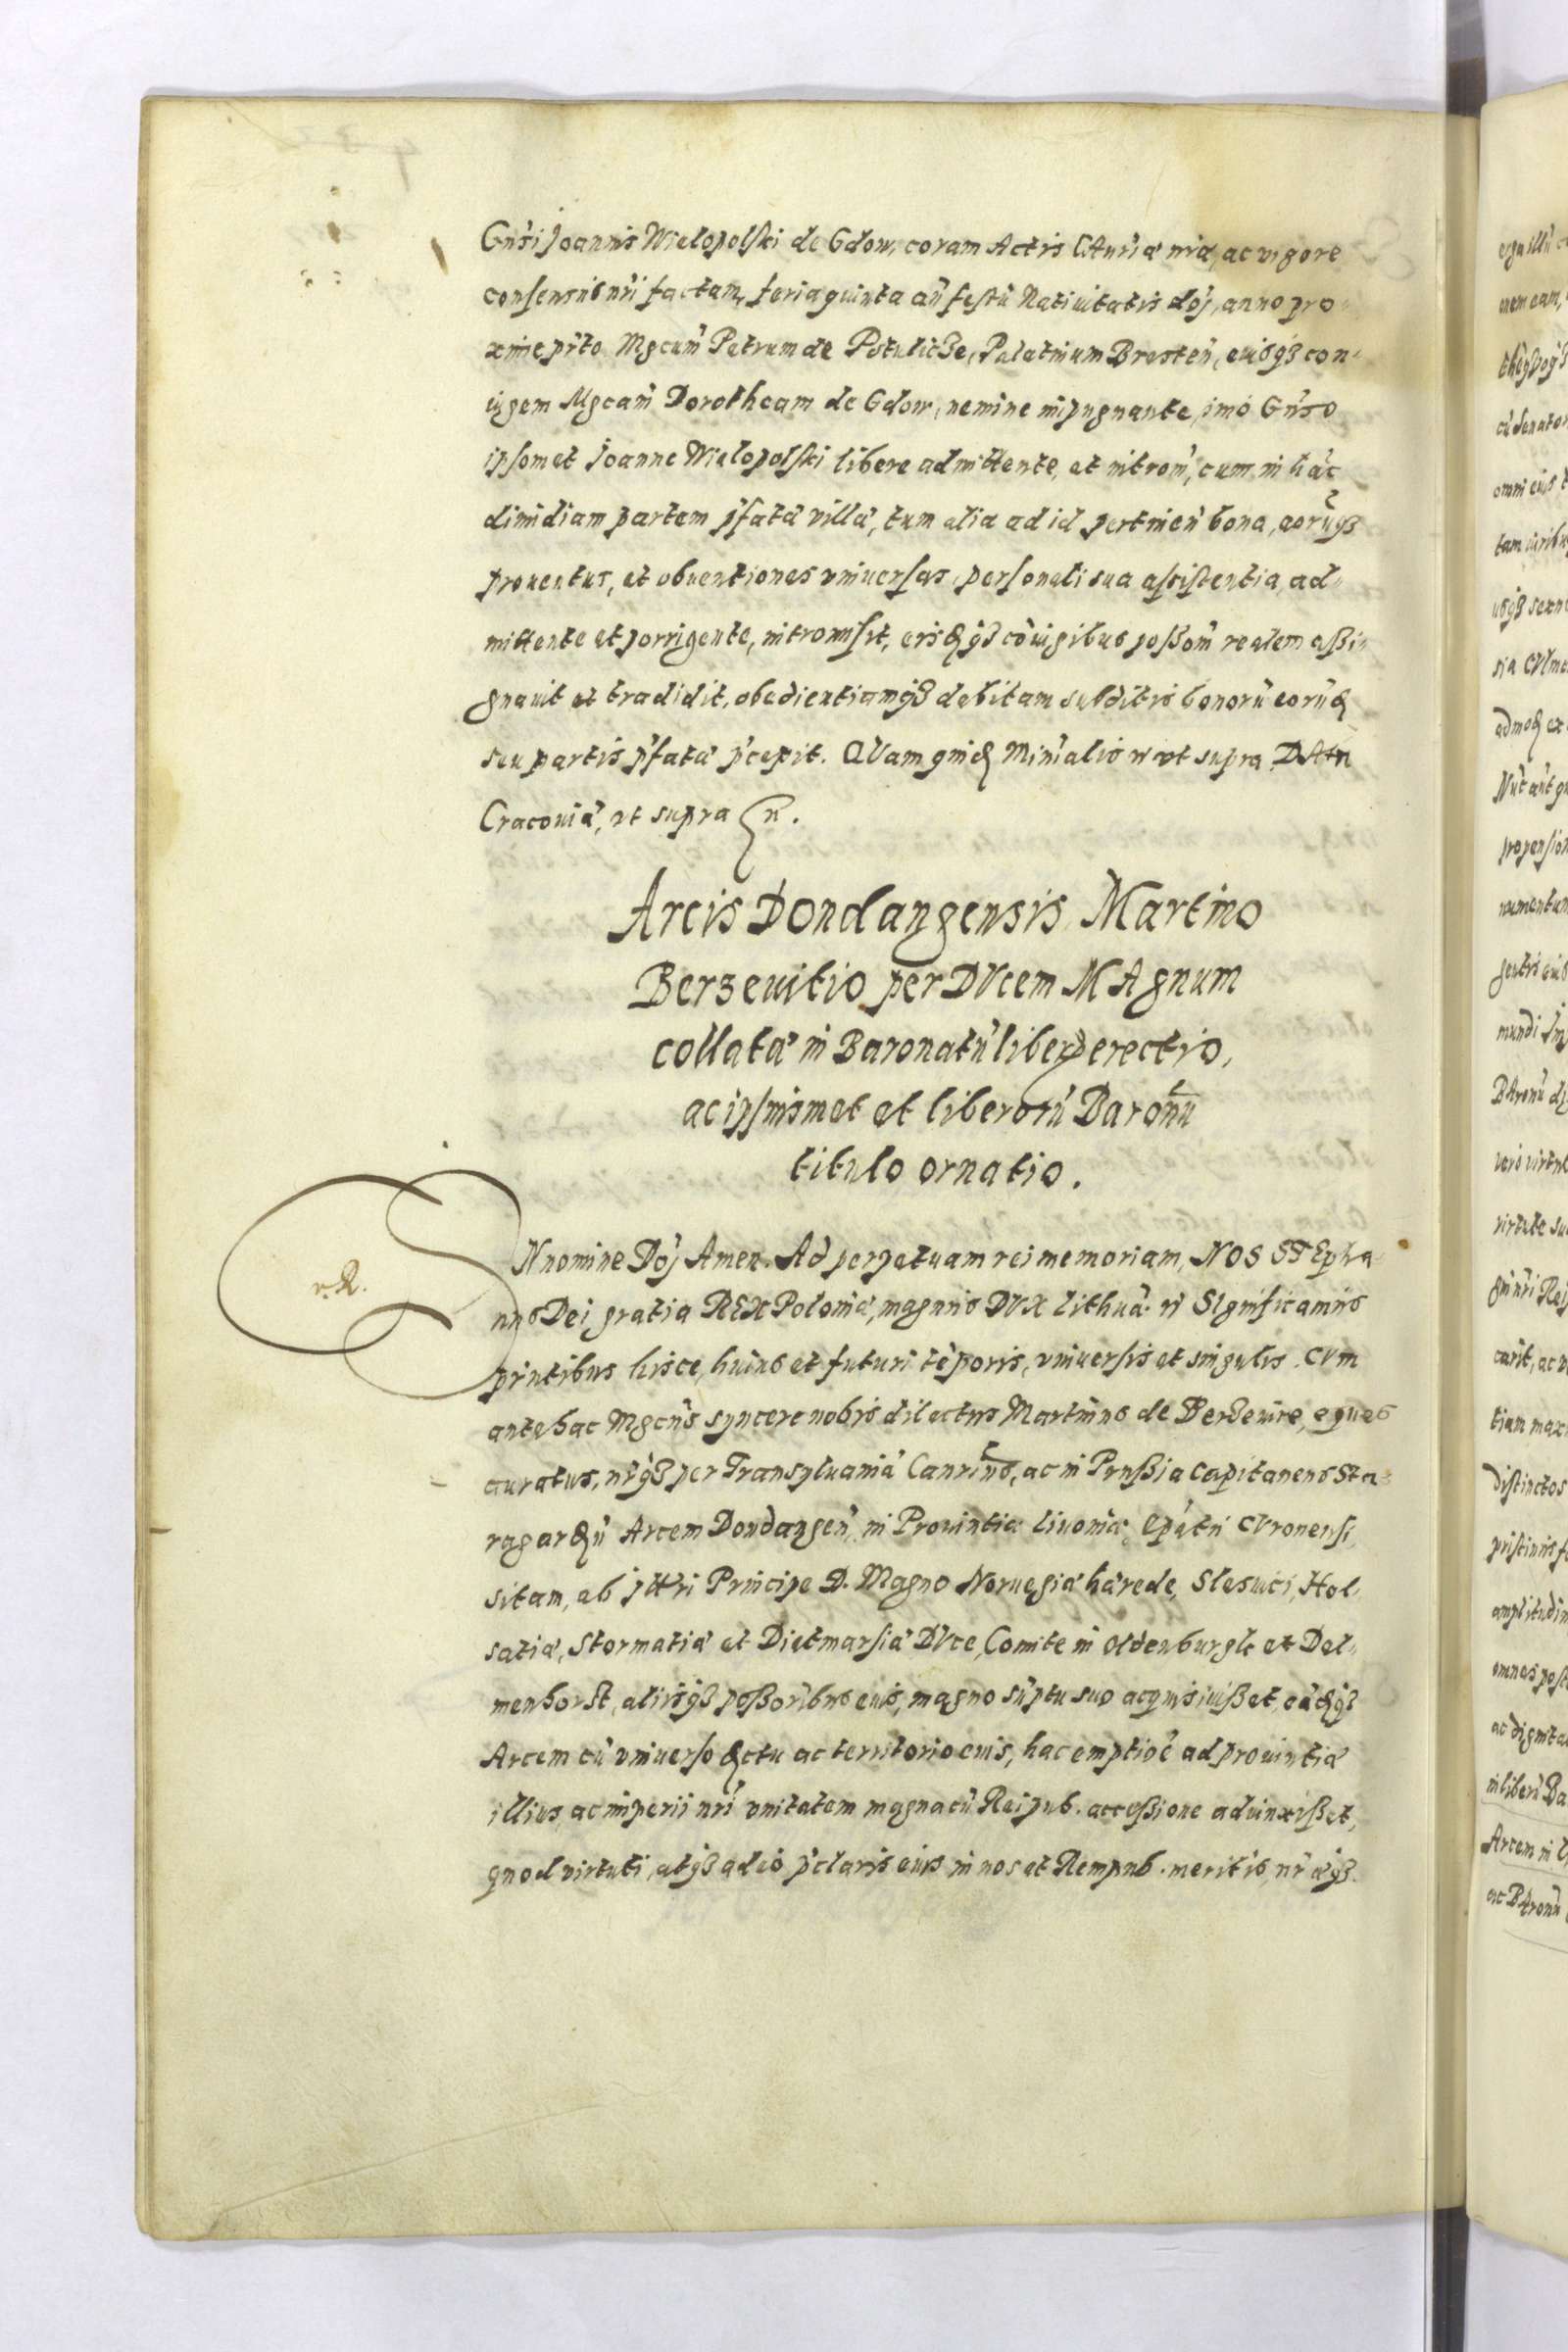 Gnsi Joannis Wielopolski de Gdow, coram Actis CAncriæ nræ, ac vigore
consensus nri factam, feria quinta añ festũ Natiuitatis dñj, anno pro-
xime pñto Mgcum Petrum de Potulicze, Palatinum Bresten, eiusq3 con-
iugem Mgcam Dorotheam de Gdow, nemine impugnante, imo Gnso
ipsomet Joanne Wielopolski libere admittente, et introm, cum in hãc
dimidiam partem pfatæ villæ, tum alia ad id pertineñ bona, eorũq3
prouentus, et obuentiones vniuersas, personali sua assistentia ad-
mittente et porrigente, intromisit, eisdq3 cõiugibus possom realem assi-
gnauit et tradidit, obedientiamq3 debitam subditis bonorũ eorũd
seu partis pfatæ pcepit. QVam quid Minialis n vt supra DAtn
Cracouiæ, vt supra n.
Arcis Dondangensis Martino
Berzeuitio per DVcem MAgnum
collatæ in Baronatũ liberũ erectio,
ac ipsiusmet et liberorũ Baronũ
titulo ornatio.
v. R.
IN nomine Dñj Amen. Ad perpetuam rei memoriam, NOS STEpha-
nus Dei gratia REX Poloniæ, magnus DVX Lithuã. n SIgnificamus
pñtibus hisce, huius et futuri tẽporis, vniuersis et singulis. CVm
antehac Mgcus syncere nobis dilectus Martinus de Berzeuice, eques
auratus, nrq3 per Transyluaniã Canrius, ac in Prussia Capitaneus Sta-
ragardñ Arcem Dondangeñ, in Prouintia Liuoniæ, Epatui CVronensi
sitam, ab Illtri Principe D. Magno Noruegiæ hærede, Slesuici, Hol-
satiæ, Stormatiæ et Dietmarsiæ DVce, Comite in Oldenburgk et Del-
menhorst, aliisq3 possoribus eius, magno sũptu suo acquisiuisset, eãdq3
Arcem cũ vniuerso dctu ac territorio eius, hac emptiõe ad prouintiã
illius, ac imperii nri vnitatem magna cũ Reipub. accessione adiunxisset,
quod virtuti, atq3 adeo pclaris eius in nos et Rempub. meritis, nræq3